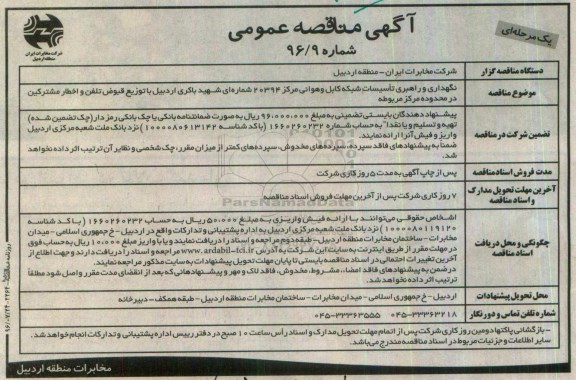 آگهی مناقصه عمومی
شماره ۹۶/۹
یک مرحله‌ای
شرکت مخابرات ایران
منطقه اردبیل
دستگاه مناقصه گزار
شرکت مخابرات ایران - منطقه اردبیل
موضوع مناقصه
نگهداری و راهبری تأسیسات شبکه کابل و هوائی مرکز ۲۰۳۹۴ شماره‌ای شهید باکری اردبیل با توزیع قبوض تلفن و اخطار مشترکین
در محدوده مرکز مربوطه
تضمین شرکت در مناقصه
پیشنهاد دهندگان بایستی تضمینی به مبلغ ۹۶،۰۰۰،۰۰۰ ریال به صورت ضمانتنامه بانکی یا چک بانکی رمزدار (چک تضمین شده)
تهیه و تسلیم و یا نقداً به حساب شماره ۱۶۶۰۲۶۰۲۳۲ (با کد شناسه ۱۰۰۰۰۰۸۰۶۱۳۱۴۲) نزد بانک ملت شعبه مرکزی اردبیل
واریز و فیش آنرا ارائه نمایند
ضمناً به پیشنهادهای فاقد سپرده، سپرده‌های مخدوش، سپرده‌های کمتر از میزان مقرر، چک شخصی و نظایر آن ترتیب اثر داده نخواهد
شد.
مدت فروش اسناد مناقصه
پس از چاپ آگهی به مدت ۵ روز کاری شرکت
آخرین مهلت تحویل مدارک
و اسناد مناقصه
۷ روز کاری شرکت پس از آخرین مهلت فروش اسناد مناقصه
چگونگی و محل دریافت
اسناد مناقصه
اشخاص حقوقی می‌توانند با ارائه فیش واریزی به مبلغ ۵۰،۰۰۰ ریال به حساب ۱۶۶۰۲۶۰۲۳۲ (با کد شناسه
۱۰۰۰۰۰۸۰۱۱۹۱۲۰) نزد بانک ملت شعبه مرکزی اردبیل به اداره پشتیبانی و تدارکات واقع در اردبیل - خ جمهوری اسلامی - میدان
مخابرات - ساختمان مخابرات منطقه اردبیل - طبقه دوم مراجعه و اسناد را دریافت نمایند و یا با واریز مبلغ ۱۰،۰۰۰ ریال به حساب فوق
در مهلت مقرر از طریق اینترنت به سایت این شرکت به آدرس www.ardabil-tci.ir مراجعه و اسناد را دریافت دارند و جهت اطلاع از
آخرین تغییرات احتمالی در اسناد مناقصه بایستی تا پایان مهلت تحویل پیشنهادات به سایت مذکور مراجعه نمایند.
در ضمن به پیشنهادهای فاقد امضاء، مشروط، مخدوش، فاقد لاک و مهر و پیشنهادهائی که بعد از انقضای مدت مقرر واصل شود مطلقاً
ترتیب اثر داده نخواهد شد.
محل تحویل پیشنهادات
اردبیل - خ جمهوری اسلامی - میدان مخابرات - ساختمان مخابرات منطقه اردبیل - طبقه همکف - دبیرخانه
شماره تلفن تماس و دورنگار
۰۴۵-۳۳۳۶۳۲۱۸ ۰۴۵-۳۳۳۶۳۵۵۵
- بازگشائی پاکتها دومین روز کاری شرکت پس از اتمام مهلت تحویل مدارک و اسناد رأس ساعت ۱۰ صبح در دفتر رییس اداره پشتیبانی و تدارکات انجام خواهد شد.
سایر اطلاعات و جزئیات مربوط در اسناد مناقصه مندرج می‌باشد.
مخابرات منطقه اردبیل
ParsNamadData